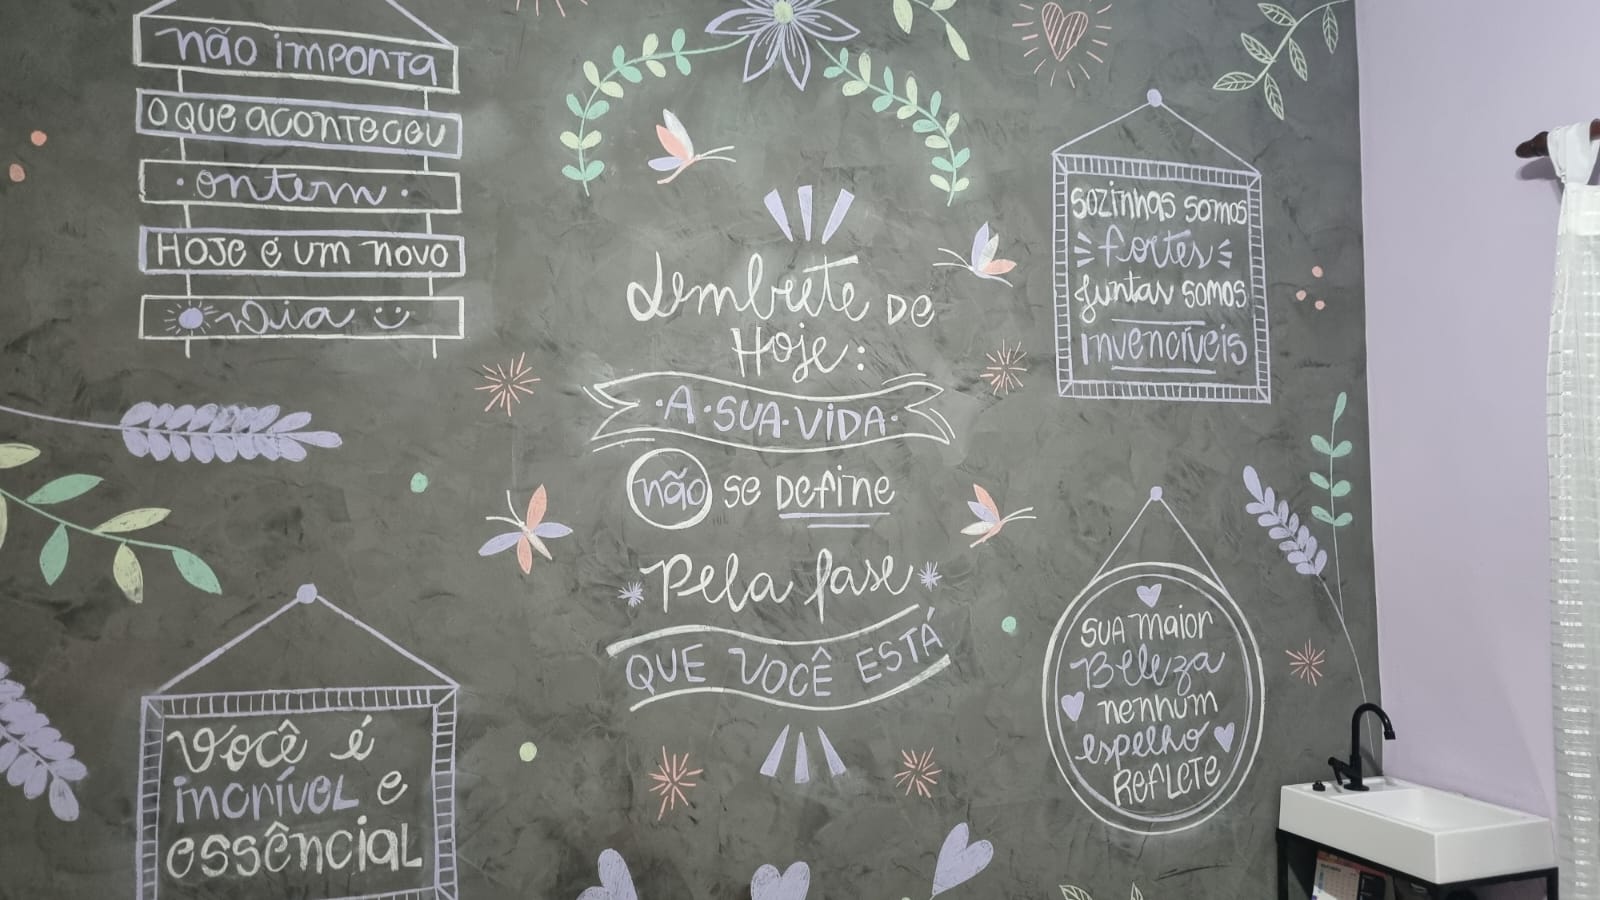 não importa
o que aconteceu
· ontem ·
Hoje é um novo
Dia
Lembrete de
Hoje:
· A · SUA · VIDA ·
não se define
Pela fase
QUE VOCÊ ESTÁ
sozinhas somos
fortes
juntas somos
invencíveis
Você é
incrível e
essêncial
SUA maior
Beleza
nenhum
espelho
REFLETE